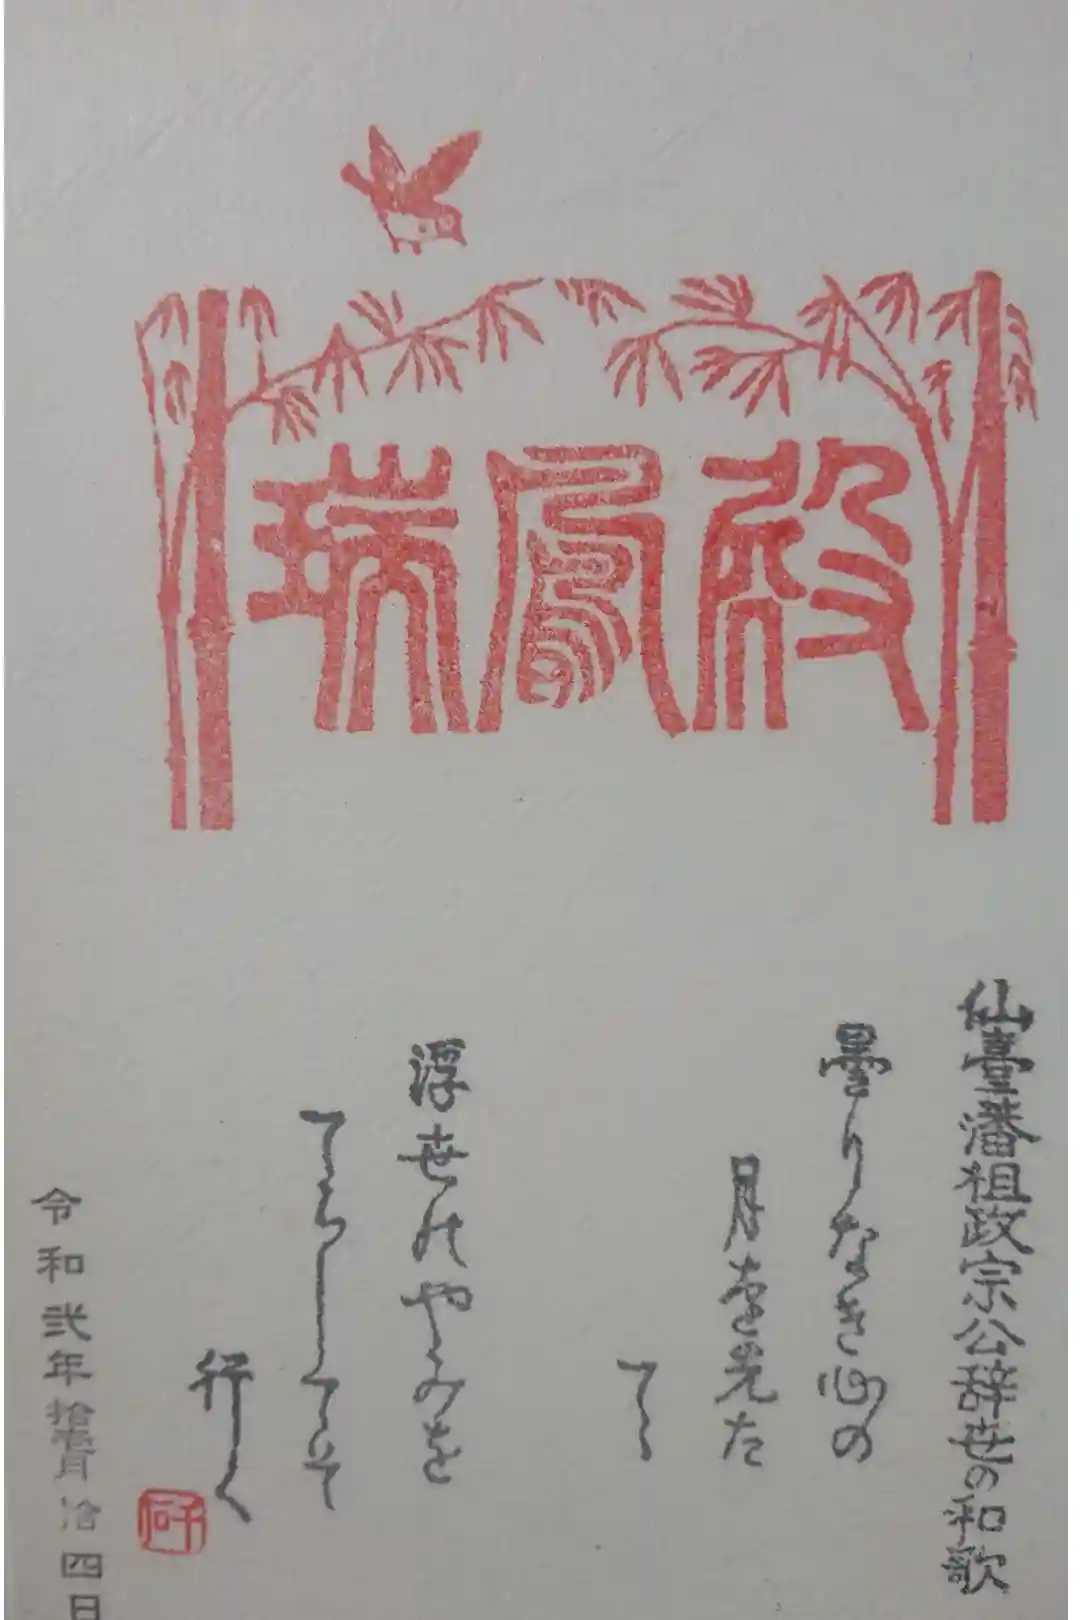 瑞鳳殿
仙臺藩祖政宗公辞世の和歌
曇りなき心の
月を先た
てゝ
浮世のやみを
てらしてそ
行く
令和弐年拾壹月拾四日